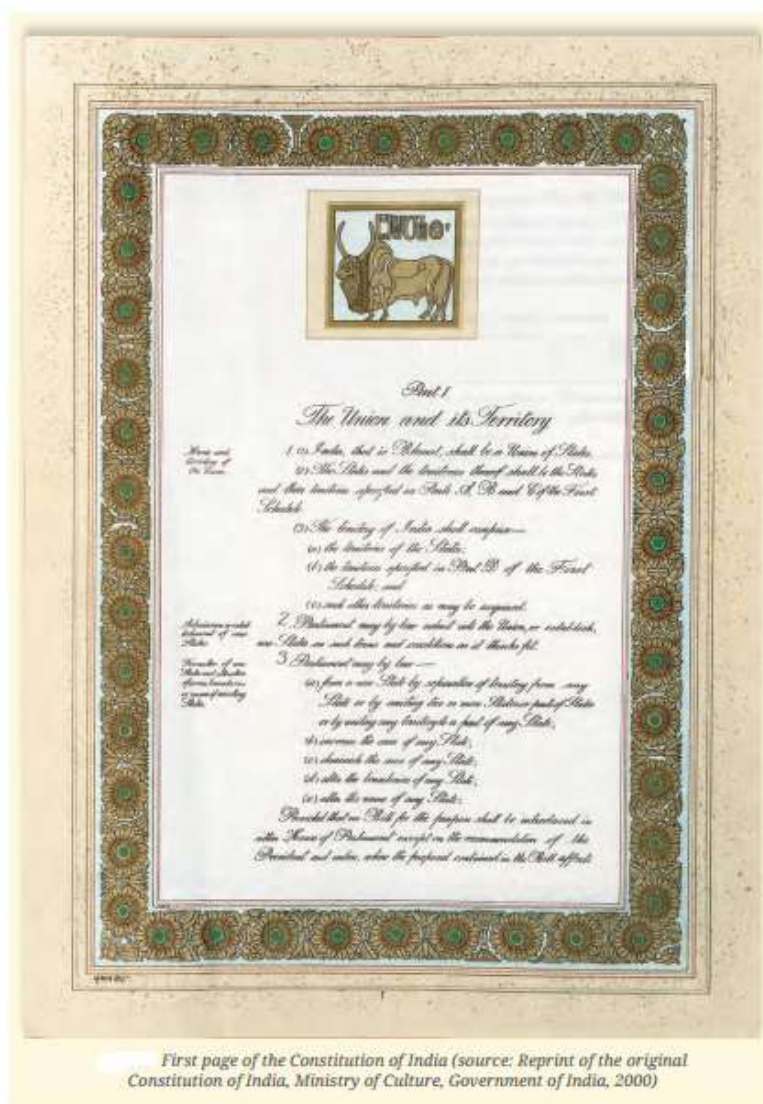 Part I
The Union and its Territory
Name and
territory of
the Union.
1. (1) India, that is Bharat, shall be a Union of States.
(2) The States and the territories thereof shall be the States
and their territories specified in Parts A, B and C of the First
Schedule.
(3) The territory of India shall comprise—
(a) the territories of the States;
(b) the territories specified in Part D of the First
Schedule; and
(c) such other territories as may be acquired.
Admission or estab-
lishment of new
States.
2. Parliament may by law admit into the Union, or establish,
new States on such terms and conditions as it thinks fit.
Formation of new
States and alteration
of areas, boundaries
or names of existing
States.
3. Parliament may by law—
(a) form a new State by separation of territory from any
State or by uniting two or more States or parts of States
or by uniting any territory to a part of any State;
(b) increase the area of any State;
(c) diminish the area of any State;
(d) alter the boundaries of any State;
(e) alter the name of any State:
Provided that no Bill for the purpose shall be introduced in
either House of Parliament except on the recommendation of the
President and unless, where the proposal contained in the Bill affects
1
First page of the Constitution of India (source: Reprint of the original
Constitution of India, Ministry of Culture, Government of India, 2000)